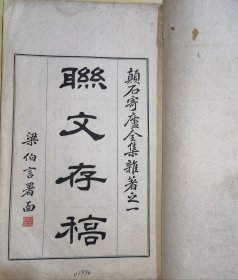 顛石寄廬全集雜著之一
聯文存稿
梁伯言署面